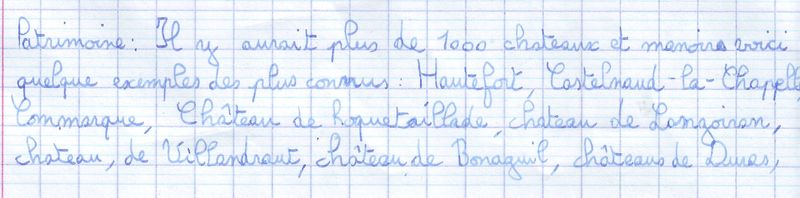 Patrimoine : Il y aurait plus de 1000 chateaux et manoirs voici
quelque exemples des plus connus : Hautefort, Castelnaud-la-Chapelle
Commarque, Château de Roquetaillade, chateau de Langoiran,
chateau, de Villandraut, château de Bonaguil, châteaus de Duras,